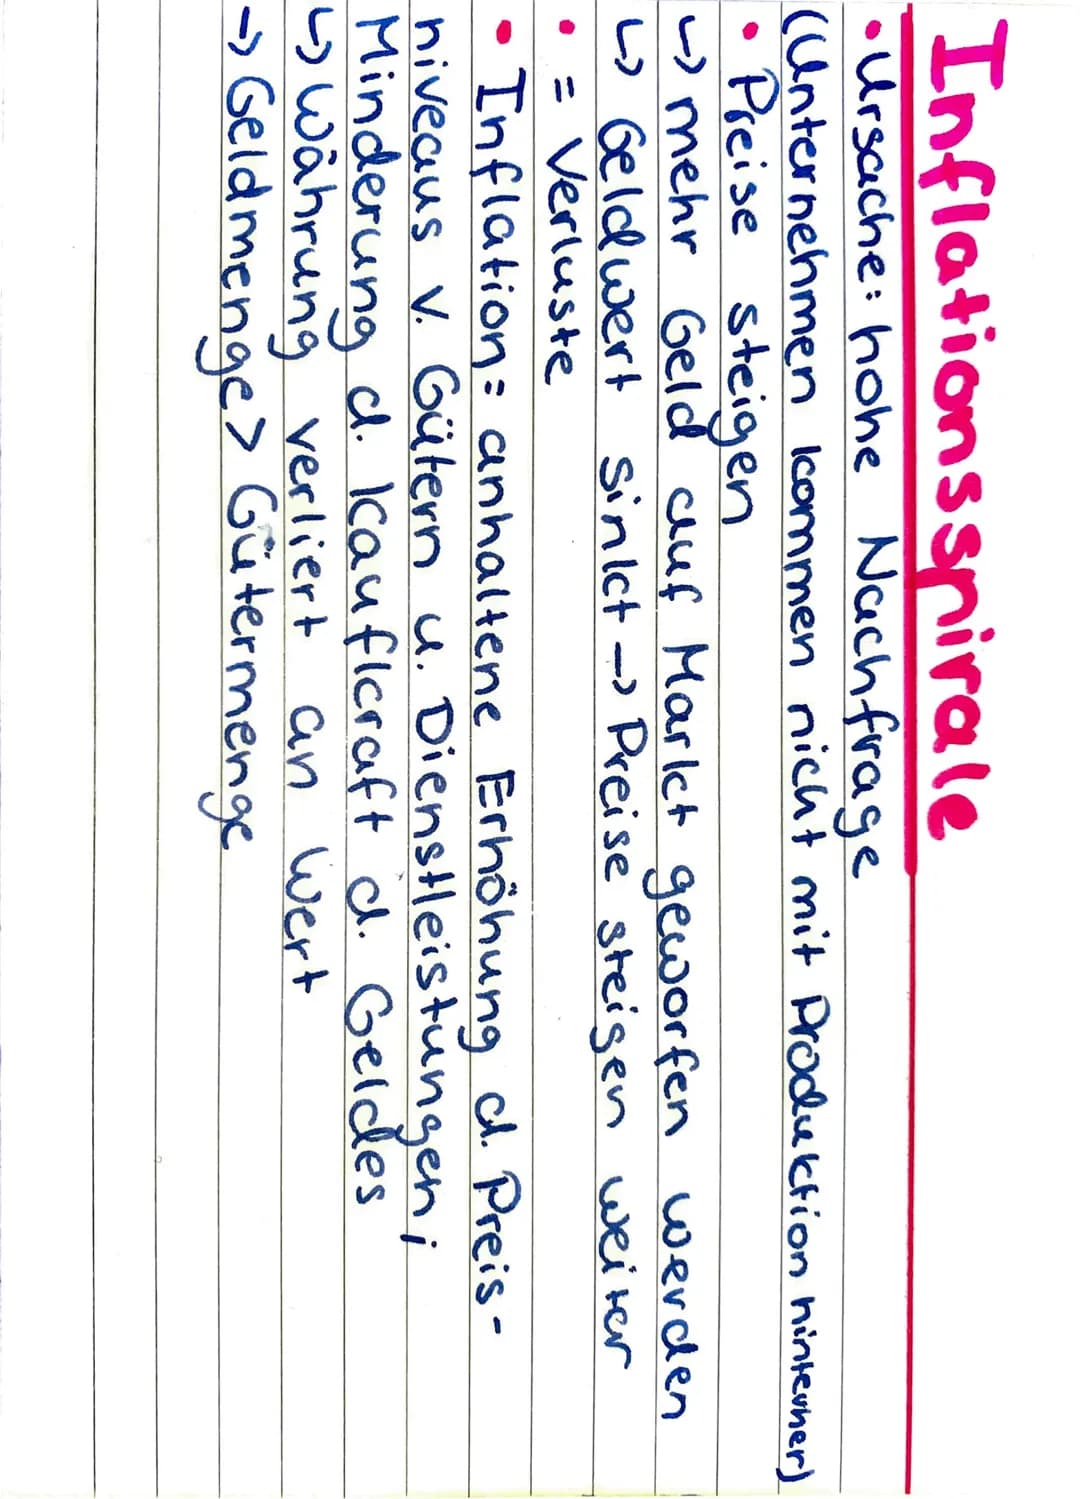 Inflationsspirale
• Ursache: hohe Nachfrage
(Unternehmen kommen nicht mit Produktion hinterher)
• Preise steigen
↳ mehr Geld auf Markt geworfen werden
↳ Geldwert sinkt → Preise steigen weiter
• = Verluste
• Inflation = anhaltene Erhöhung d. Preis-
niveaus v. Gütern u. Dienstleistungen;
Minderung d. Kaufkraft d. Geldes
↳ Währung verliert an Wert
→ Geldmenge > Gütermenge